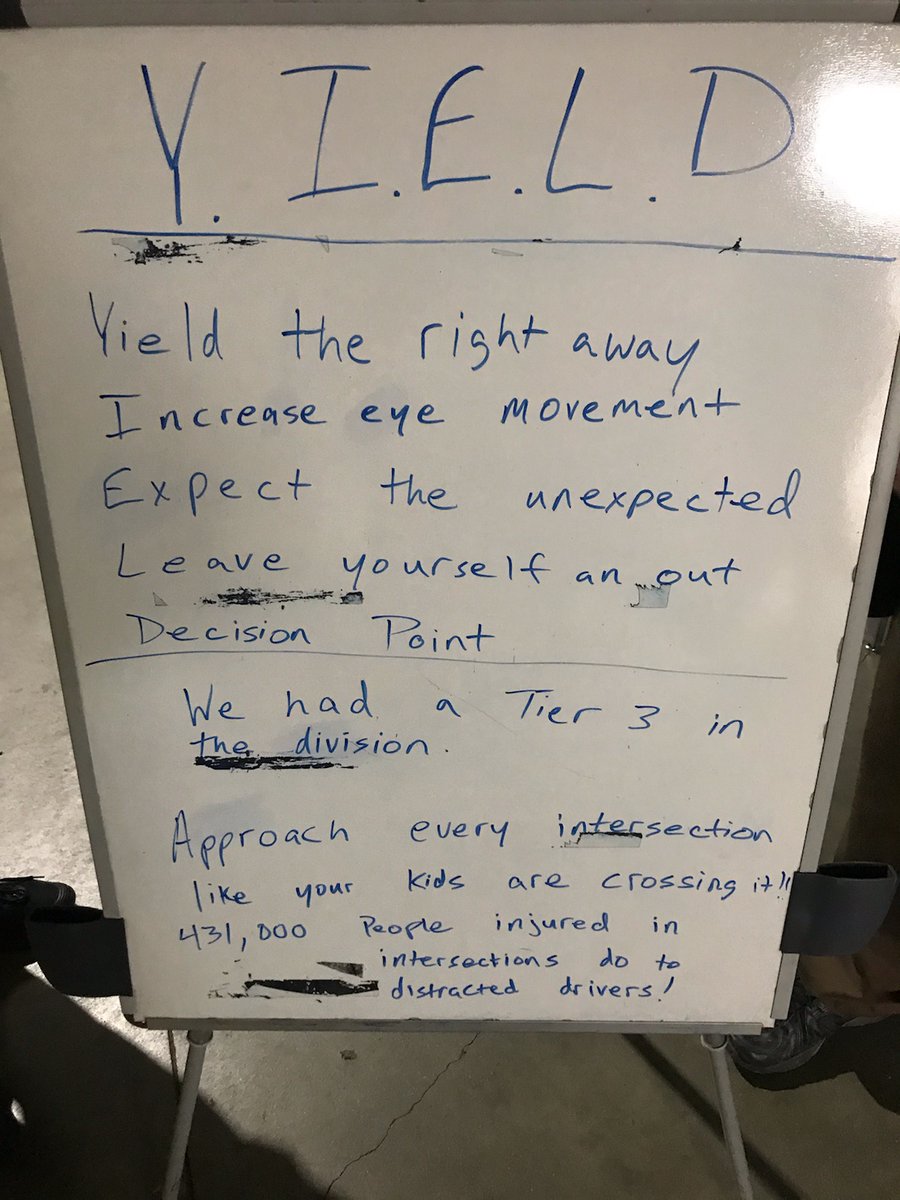 Y.I.E.L.D
Yield the right away
Increase eye movement
Expect the unexpected
Leave yourself an out
Decision Point
We had a Tier 3 in
the division.
Approach every intersection
like your kids are crossing it!!
431,000 People injured in
intersections do to
distracted drivers!